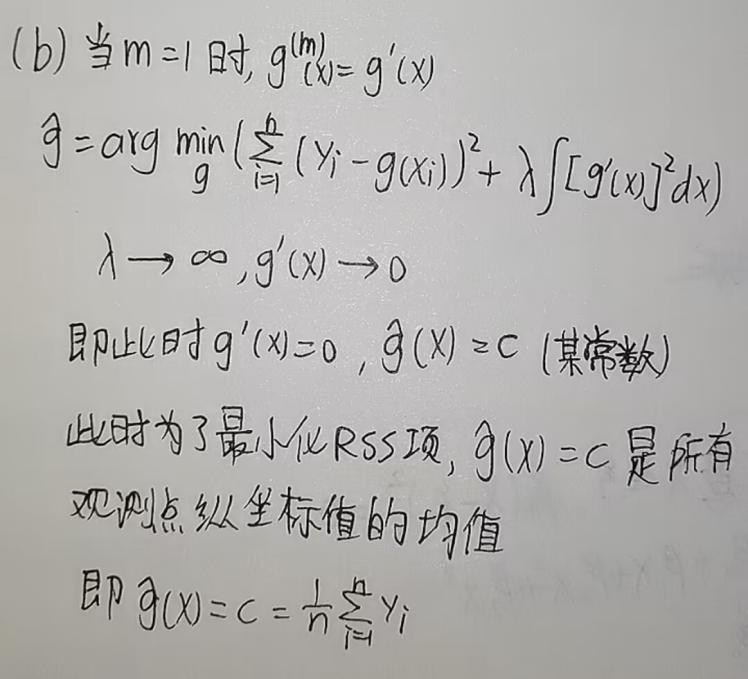 (b) 当m=1时, g^(m)(x)=g'(x)
ĝ=arg min_g (∑_{i=1}^n (yi-g(xi))²+λ∫[g'(x)]²dx)
λ→∞, g'(x)→0
即此时g'(x)=0, ĝ(x)=c (某常数)
此时为了最小化RSS项, ĝ(x)=c是所有
观测点纵坐标值的均值
即ĝ(x)=c=1/n ∑_{i=1}^n yi